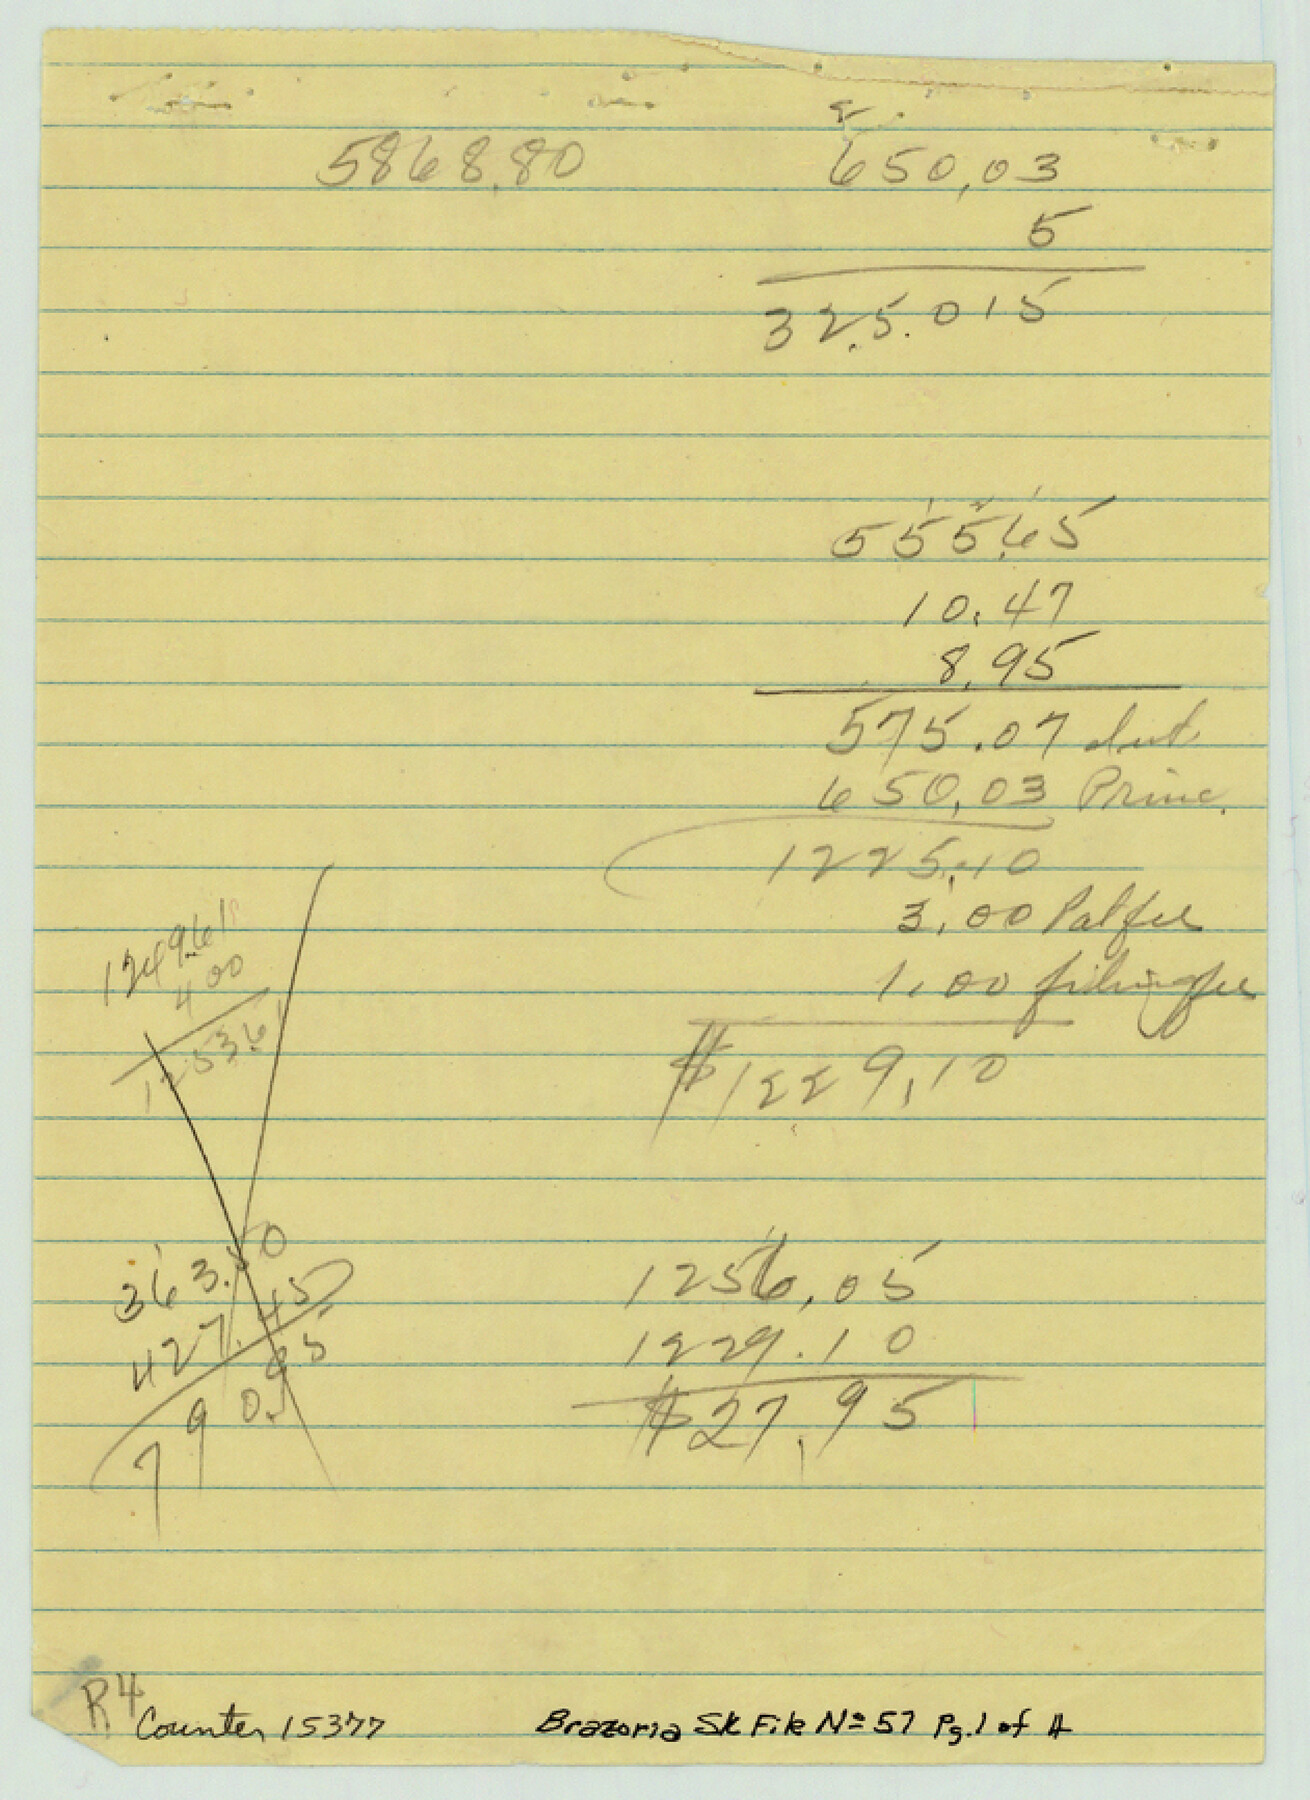 5868.80
650.03
5
325.015
555.65
10.47
8.95
575.07 Int
650.03 Princ.
1225.10
3.00 Pat fee
1.00 filing fee
$1229.10
1249.61
4 00
1253.61
363.50
427.45
790.95
1256.05
1229.10
$27.95
R4
Counter 15377
Brazoria Sk File No 57 Pg. 1 of 4